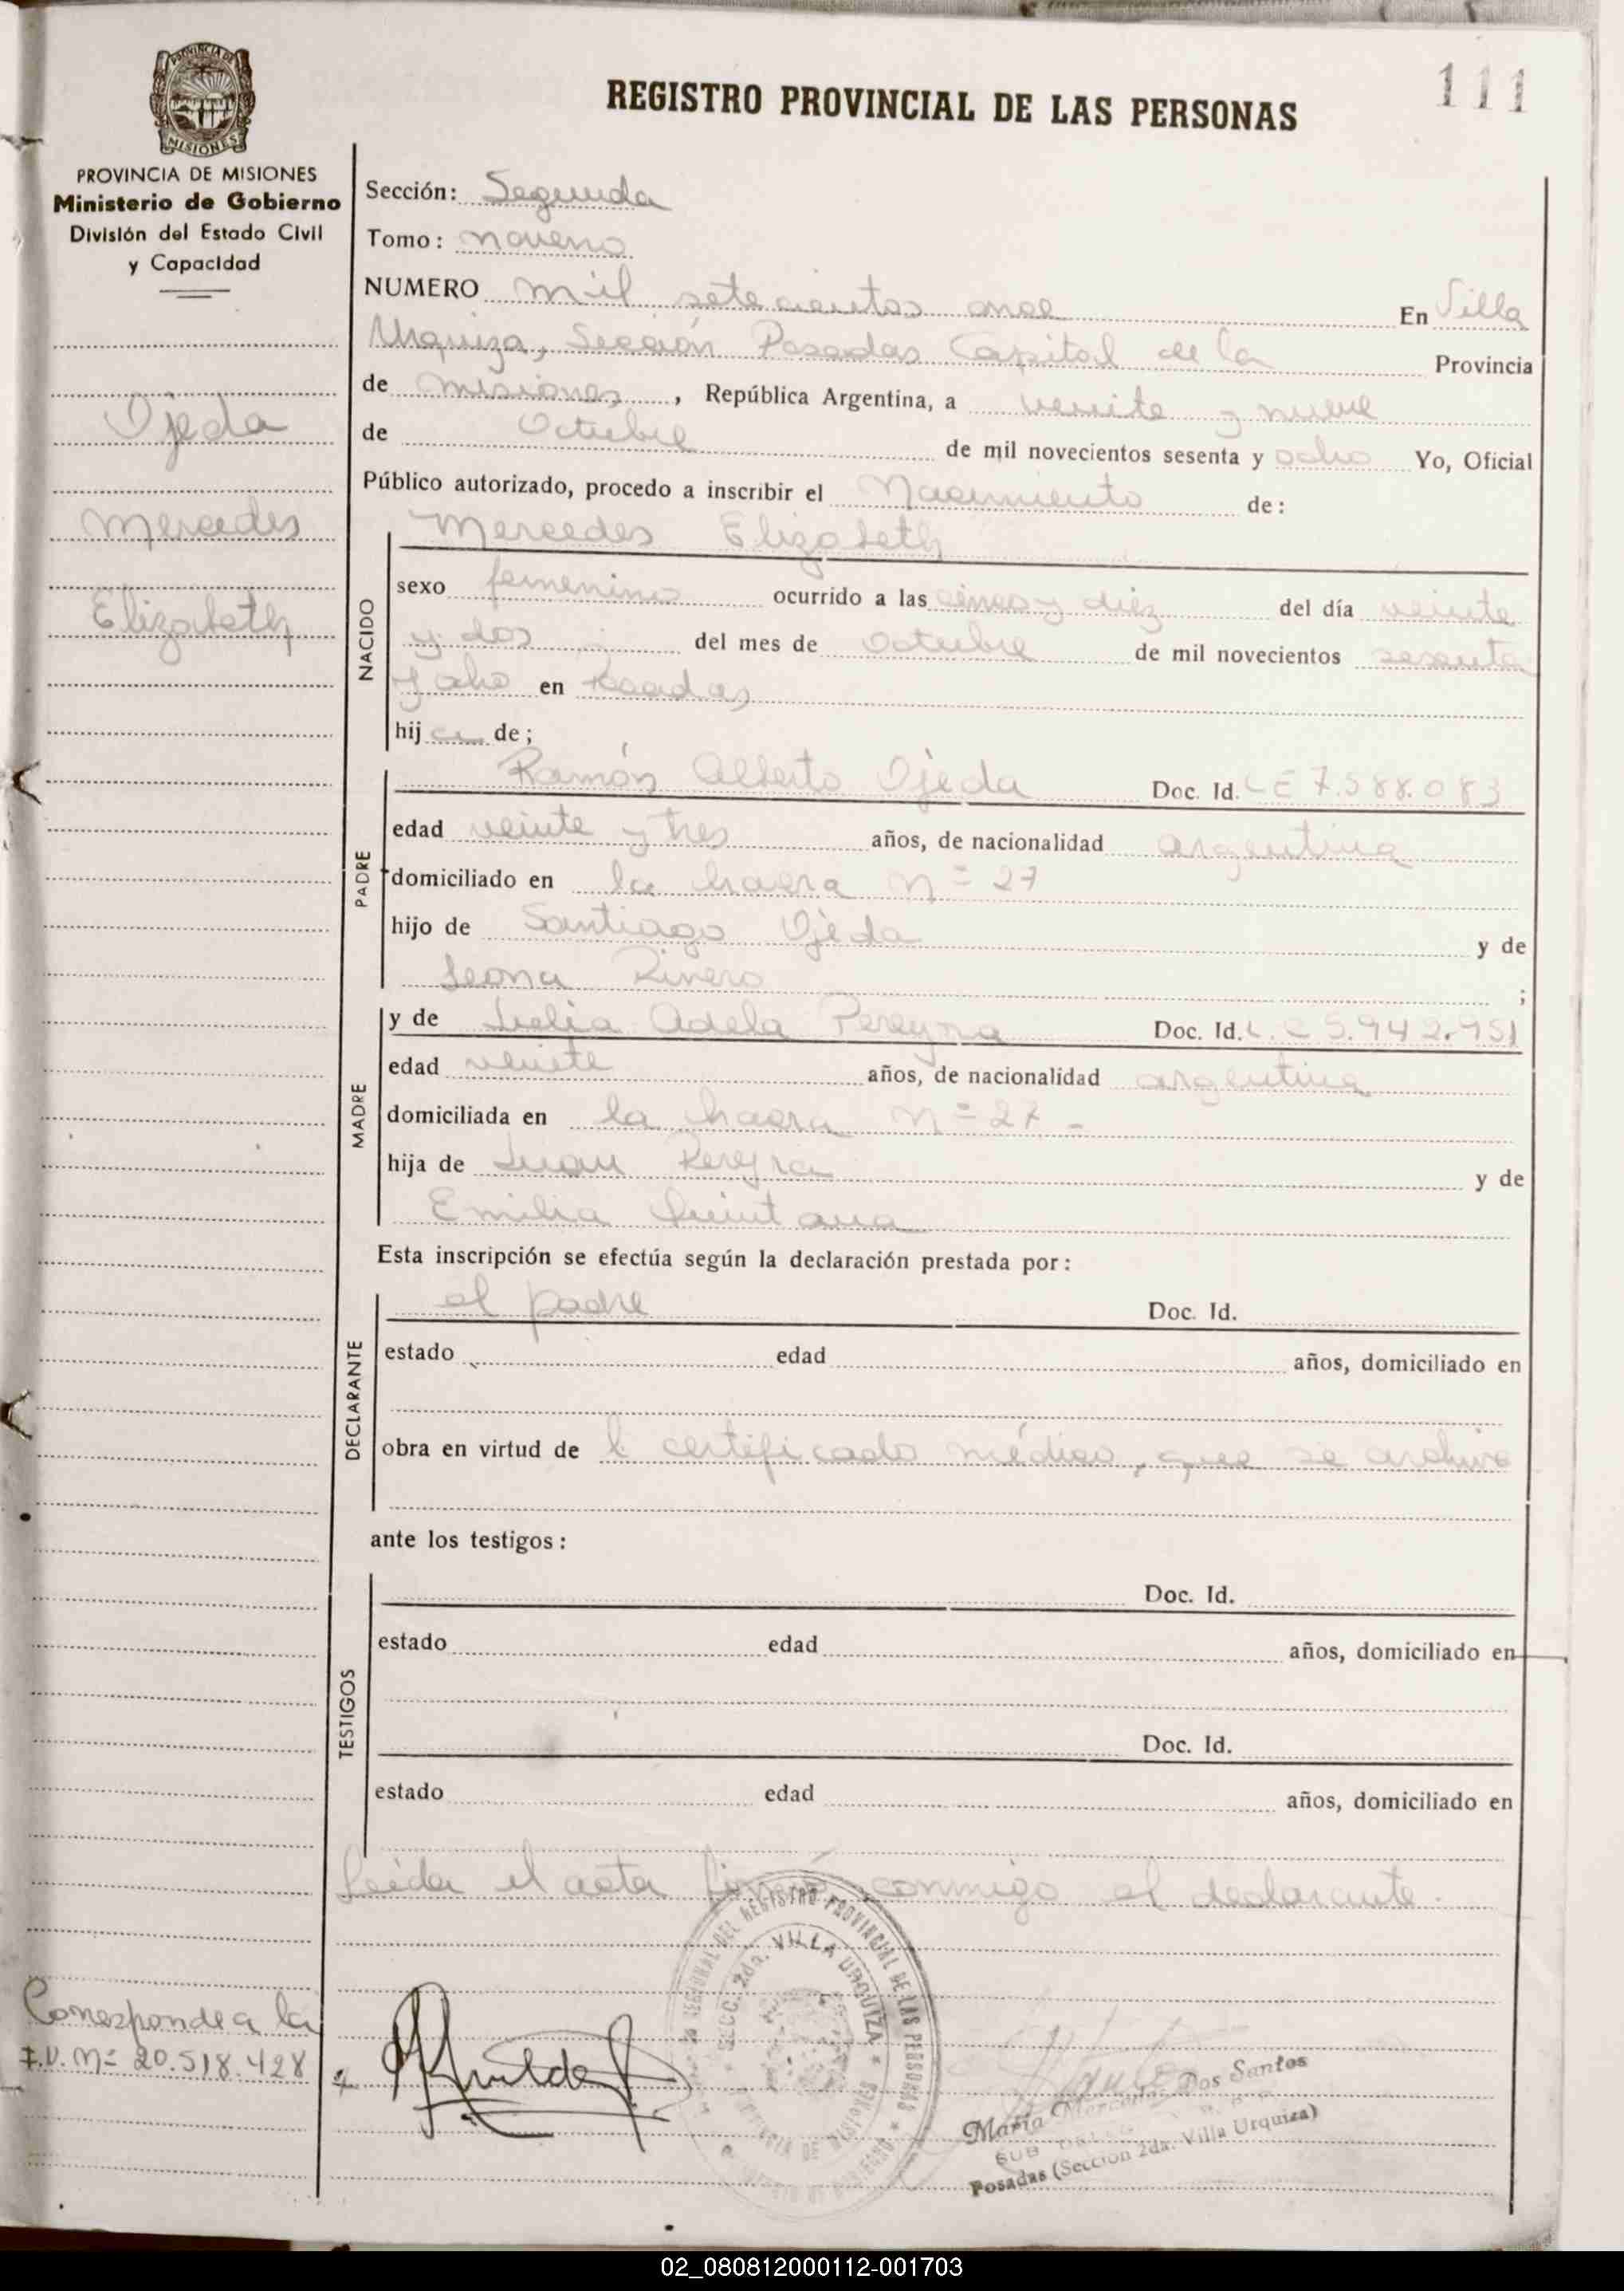 111
REGISTRO PROVINCIAL DE LAS PERSONAS
MISIONES
PROVINCIA DE MISIONES
Ministerio de Gobierno
División del Estado Civil
y Capacidad
Ojeda
Mercedes
Elizabeth
Sección: Segunda
Tomo: noveno
NUMERO mil setecientos once En Villa
Urquiza, Sección Posadas Capital de la Provincia
de Misiones, República Argentina, a veinte y nueve
de Octubre de mil novecientos sesenta y ocho Yo, Oficial
Público autorizado, procedo a inscribir el Nacimiento de:
Mercedes Elizabeth
NACIDO
sexo femenino ocurrido a las cinco y diez del día veinte
y dos del mes de Octubre de mil novecientos sesenta
y ocho en Posadas
hija de;
PADRE
Ramón Alberto Ojeda Doc. Id. LE 7.588.083
edad veinte y tres años, de nacionalidad argentina
domiciliado en la chacra Nº 27
hijo de Santiago Ojeda y de
Leona Rivero ;
MADRE
y de Adela Pereyra Doc. Id. L.C 5.942.951
edad veinte años, de nacionalidad argentina
domiciliada en la chacra Nº 27 -
hija de Juan Pereyra y de
Emilia Quintana
Esta inscripción se efectúa según la declaración prestada por:
DECLARANTE
el padre Doc. Id.
estado edad años, domiciliado en
obra en virtud de certificado médico, que se archiva
ante los testigos:
TESTIGOS
Doc. Id.
estado edad años, domiciliado en
Doc. Id.
estado edad años, domiciliado en
Leída el acta firmó conmigo el declarante.
REGIONAL DEL REGISTRO PROVINCIAL DE LAS PERSONAS
SECC. 2da. VILLA URQUIZA
PROVINCIA DE MISIONES
Corresponde a la
I.D. Nº 20.518.428
María Mercedes Dos Santos
SUB
Posadas (Sección 2da. Villa Urquiza)
02_080812000112-001703